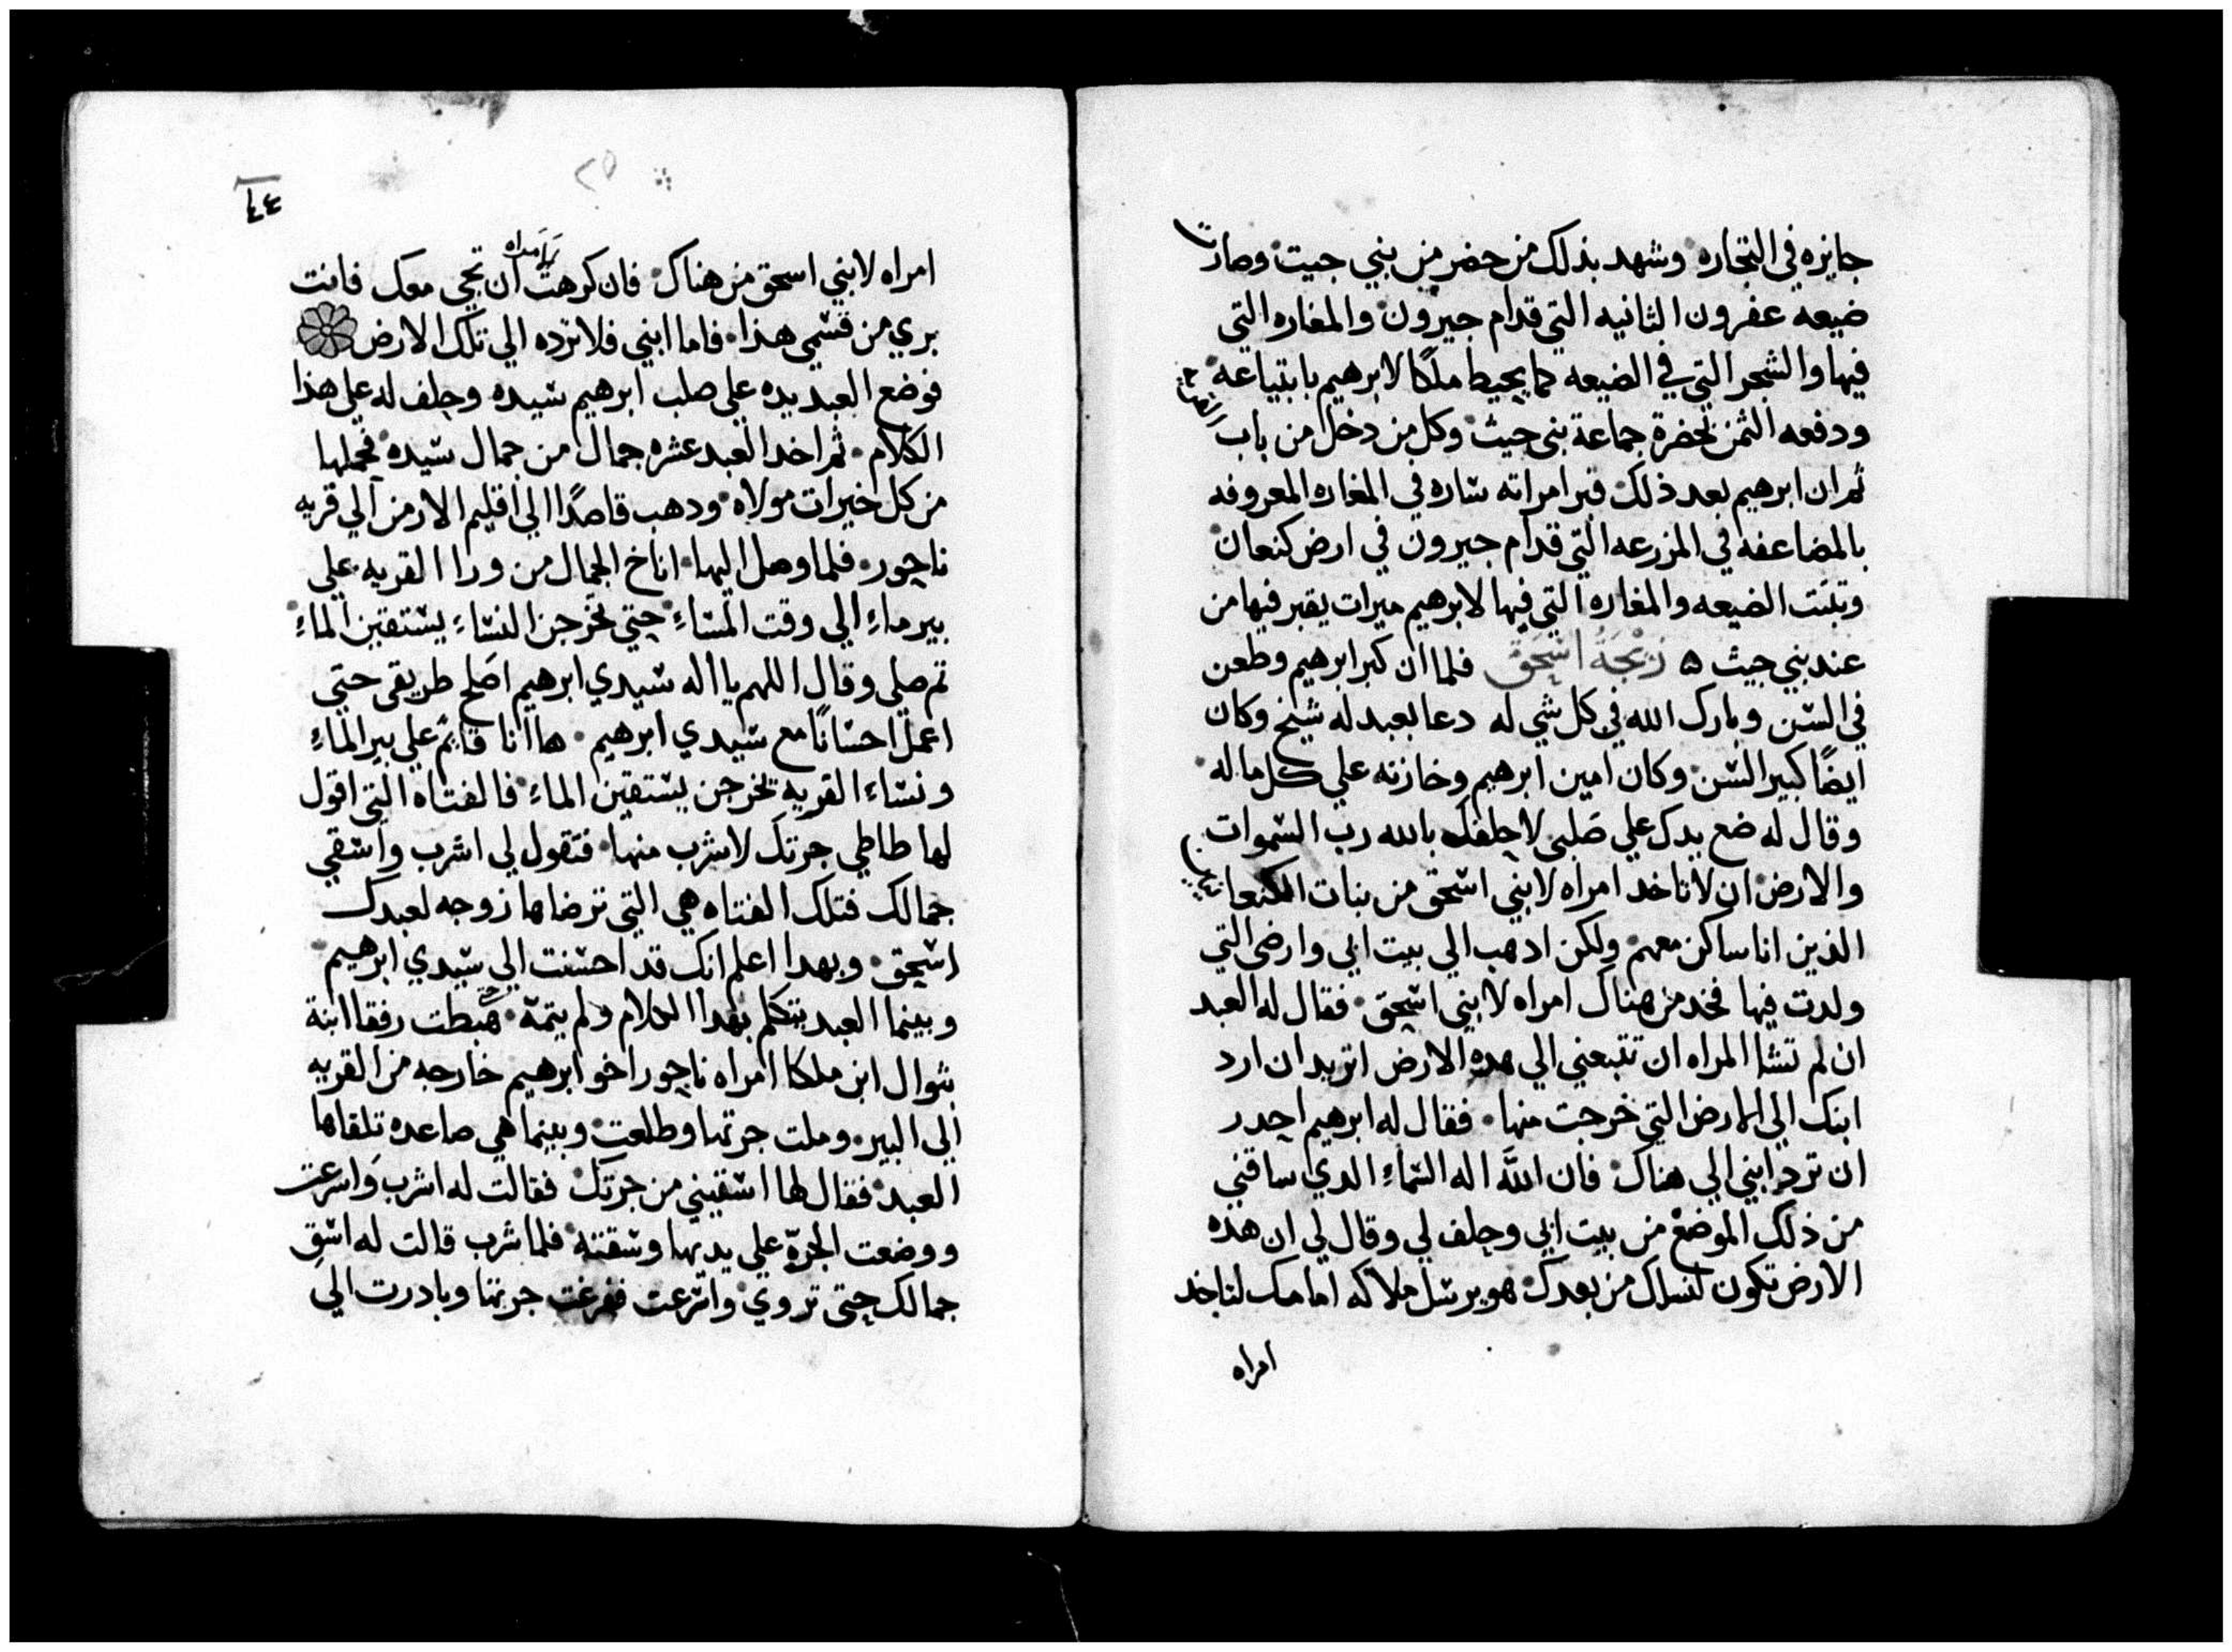 جايزه في التجاره وشهد بذلك من حضر من بني حيث وصارت
ضيعه عفرون الثانيه التي قدام حبرون والمغاره التي
فيها والشجر التي في الضيعه كما يحيط ملكًا لابرهيم بابتياعه
ودفعه الثمن بحضرة جماعة بني حيث وكل من دخل من باب
ثم ان ابرهيم بعد ذلك قبر امراته ساره في المغاره المعروفه
بالمضاعفه في المزرعه التي قدام حبرون في ارض كنعان
وثبتت الضيعه والمغاره التي فيها لابرهيم ميراث يقبر فيها من
عند بني حيث ٥ زيجة اسحق فلما ان كبر ابرهيم وطعن
في السن وبارك الله في كل شي له دعا بعبد له شيخ وكان
ايضًا كبير السن وكان امين ابرهيم وخازنه علي كل ماله
وقال له ضع يدك علي صلبي لاحلفك بالله رب السموات
والارض ان لا تاخد امراه لابني اسحق من بنات الكنعا
الذين انا ساكن معهم ولكن ادهب الي بيت ابي وارضي التي
ولدت فيها فخد من هناك امراه لابني اسحق فقال له العبد
ان لم تشا المراه ان تتبعني الي هده الارض اتريد ان ارد
ابنك الي الارض التي خرجت منها فقال له ابرهيم احدر
ان ترد ابني الي هناك فان الله اله السماء الدي ساقني
من ذلك الموضع من بيت ابي وحلف لي وقال لي ان هذه
الارض تكون لنسلك من بعدك هو يرسل ملاكه امامك لتاخد
امراه
٤٤
٢٥
امراه لابني اسحق من هناك فان كرهت المراه ان تجي معك فانت
بري من قسمي هذا فاما ابني فلا ترده الي تلك الارض
فوضع العبد يده علي صلب ابرهيم سيده وحلف له علي هذا
الكلام ثم اخد العبد عشره جمال من جمال سيده فحملها
من كل خيرات مولاه ودهب قاصدًا الي اقليم الارمن الي قريه
ناحور فلما وصل اليها اناخ الجمال من ورا القريه علي
بير ماء الي وقت المساء حتي تخرجن النساء يستقين الماء
ثم صلي وقال اللهم يا اله سيدي ابرهيم اصلح طريقي حتي
اعمل احسانًا مع سيدي ابرهيم ها انا قايم علي بير الماء
ونساء القريه تخرجن يستقين الماء فالفتاه التي اقول
لها طاطي جرتك لاشرب منها فتقول لي اشرب واسقي
جمالك فتلك الفتاه هي التي ترضاها زوجه لعبدك
اسحق وبهدا اعلم انك قد احسنت الي سيدي ابرهيم
وبينما العبد يتكلم بهدا الكلام ولم يتمه هبطت رفقا ابنة
بتوال ابن ملكا امراه ناحور اخو ابرهيم خارجه من القريه
الي البير وملت جرتها وطلعت وبينما هي صاعده تلقاها
العبد فقال لها اسقيني من جرتك فقالت له اشرب واسرعت
ووضعت الجرة علي يديها وسقته فلما شرب قالت له اسق
جمالك حتي تروي واسرعت ففرغت جرتها وبادرت الي